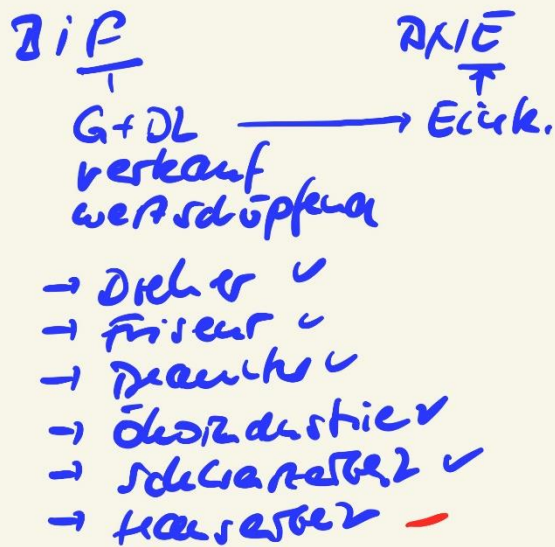 BiP BNE
G+DL → Eink.
verkauf
wertschöpfend
→ Dreher ✓
→ Friseur ✓
→ Beamter ✓
→ Ökoindustrie ✓
→ schwarzarbeit ✓
→ Hausarbeit –